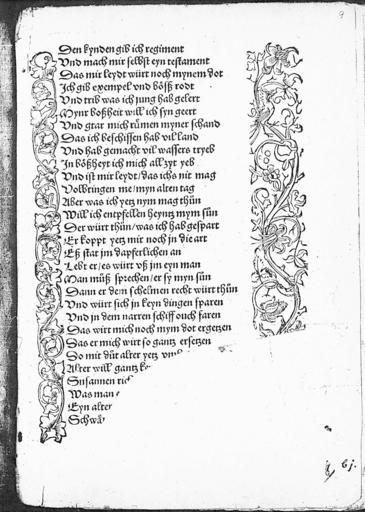 Den kynden gib ich regiment
Vnd mach mir selbst eyn testament
Das mir leydt würt noch mynem dot
Ich gib exempel vnd bösß rodt
Vnd trib was ich jung hab gelert
Mynr boßheit will ich syn geert
Vnd gtar mich rümen myner schand
Das ich beschissen hab vil land
Vnd hab gemacht vil wassers tryeb
In bößheyt ich mich allzyt yeb
Vnd ist mir leydt / das ichs nit mag
Volbringen me / myn alten tag
Aber was ich yetz nym mag thün
Will ich entpfellen heyntz mym sün
Der würt thün / was ich hab gespart
Er koppt yetz mir noch in die art
Eß stat im dapferlichen an
Lebt er / es würt vß im eyn man
Man müß sprechen / er sy myn sün
Dann er dem schelmen recht würt thün
Vnd würt sich in keyn dingen sparen
Vnd in dem narren schiff ouch faren
Das wirt mich noch mym dot ergetzen
Das er mich würt so gantz ersetzen
So mit düt alter yetz
Alter will gantz
Susannen
Was man
Eyn alter